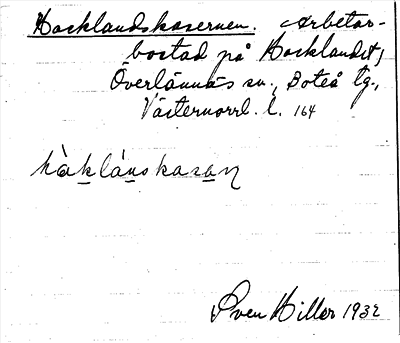 Hocklandskasernen. Arbetar-
bostad på Hocklandet,
Överlännäs sn., Boteå tg.,
Västernorrl. l. 164
hàklánskasaɲ
Sven Hiller 1932